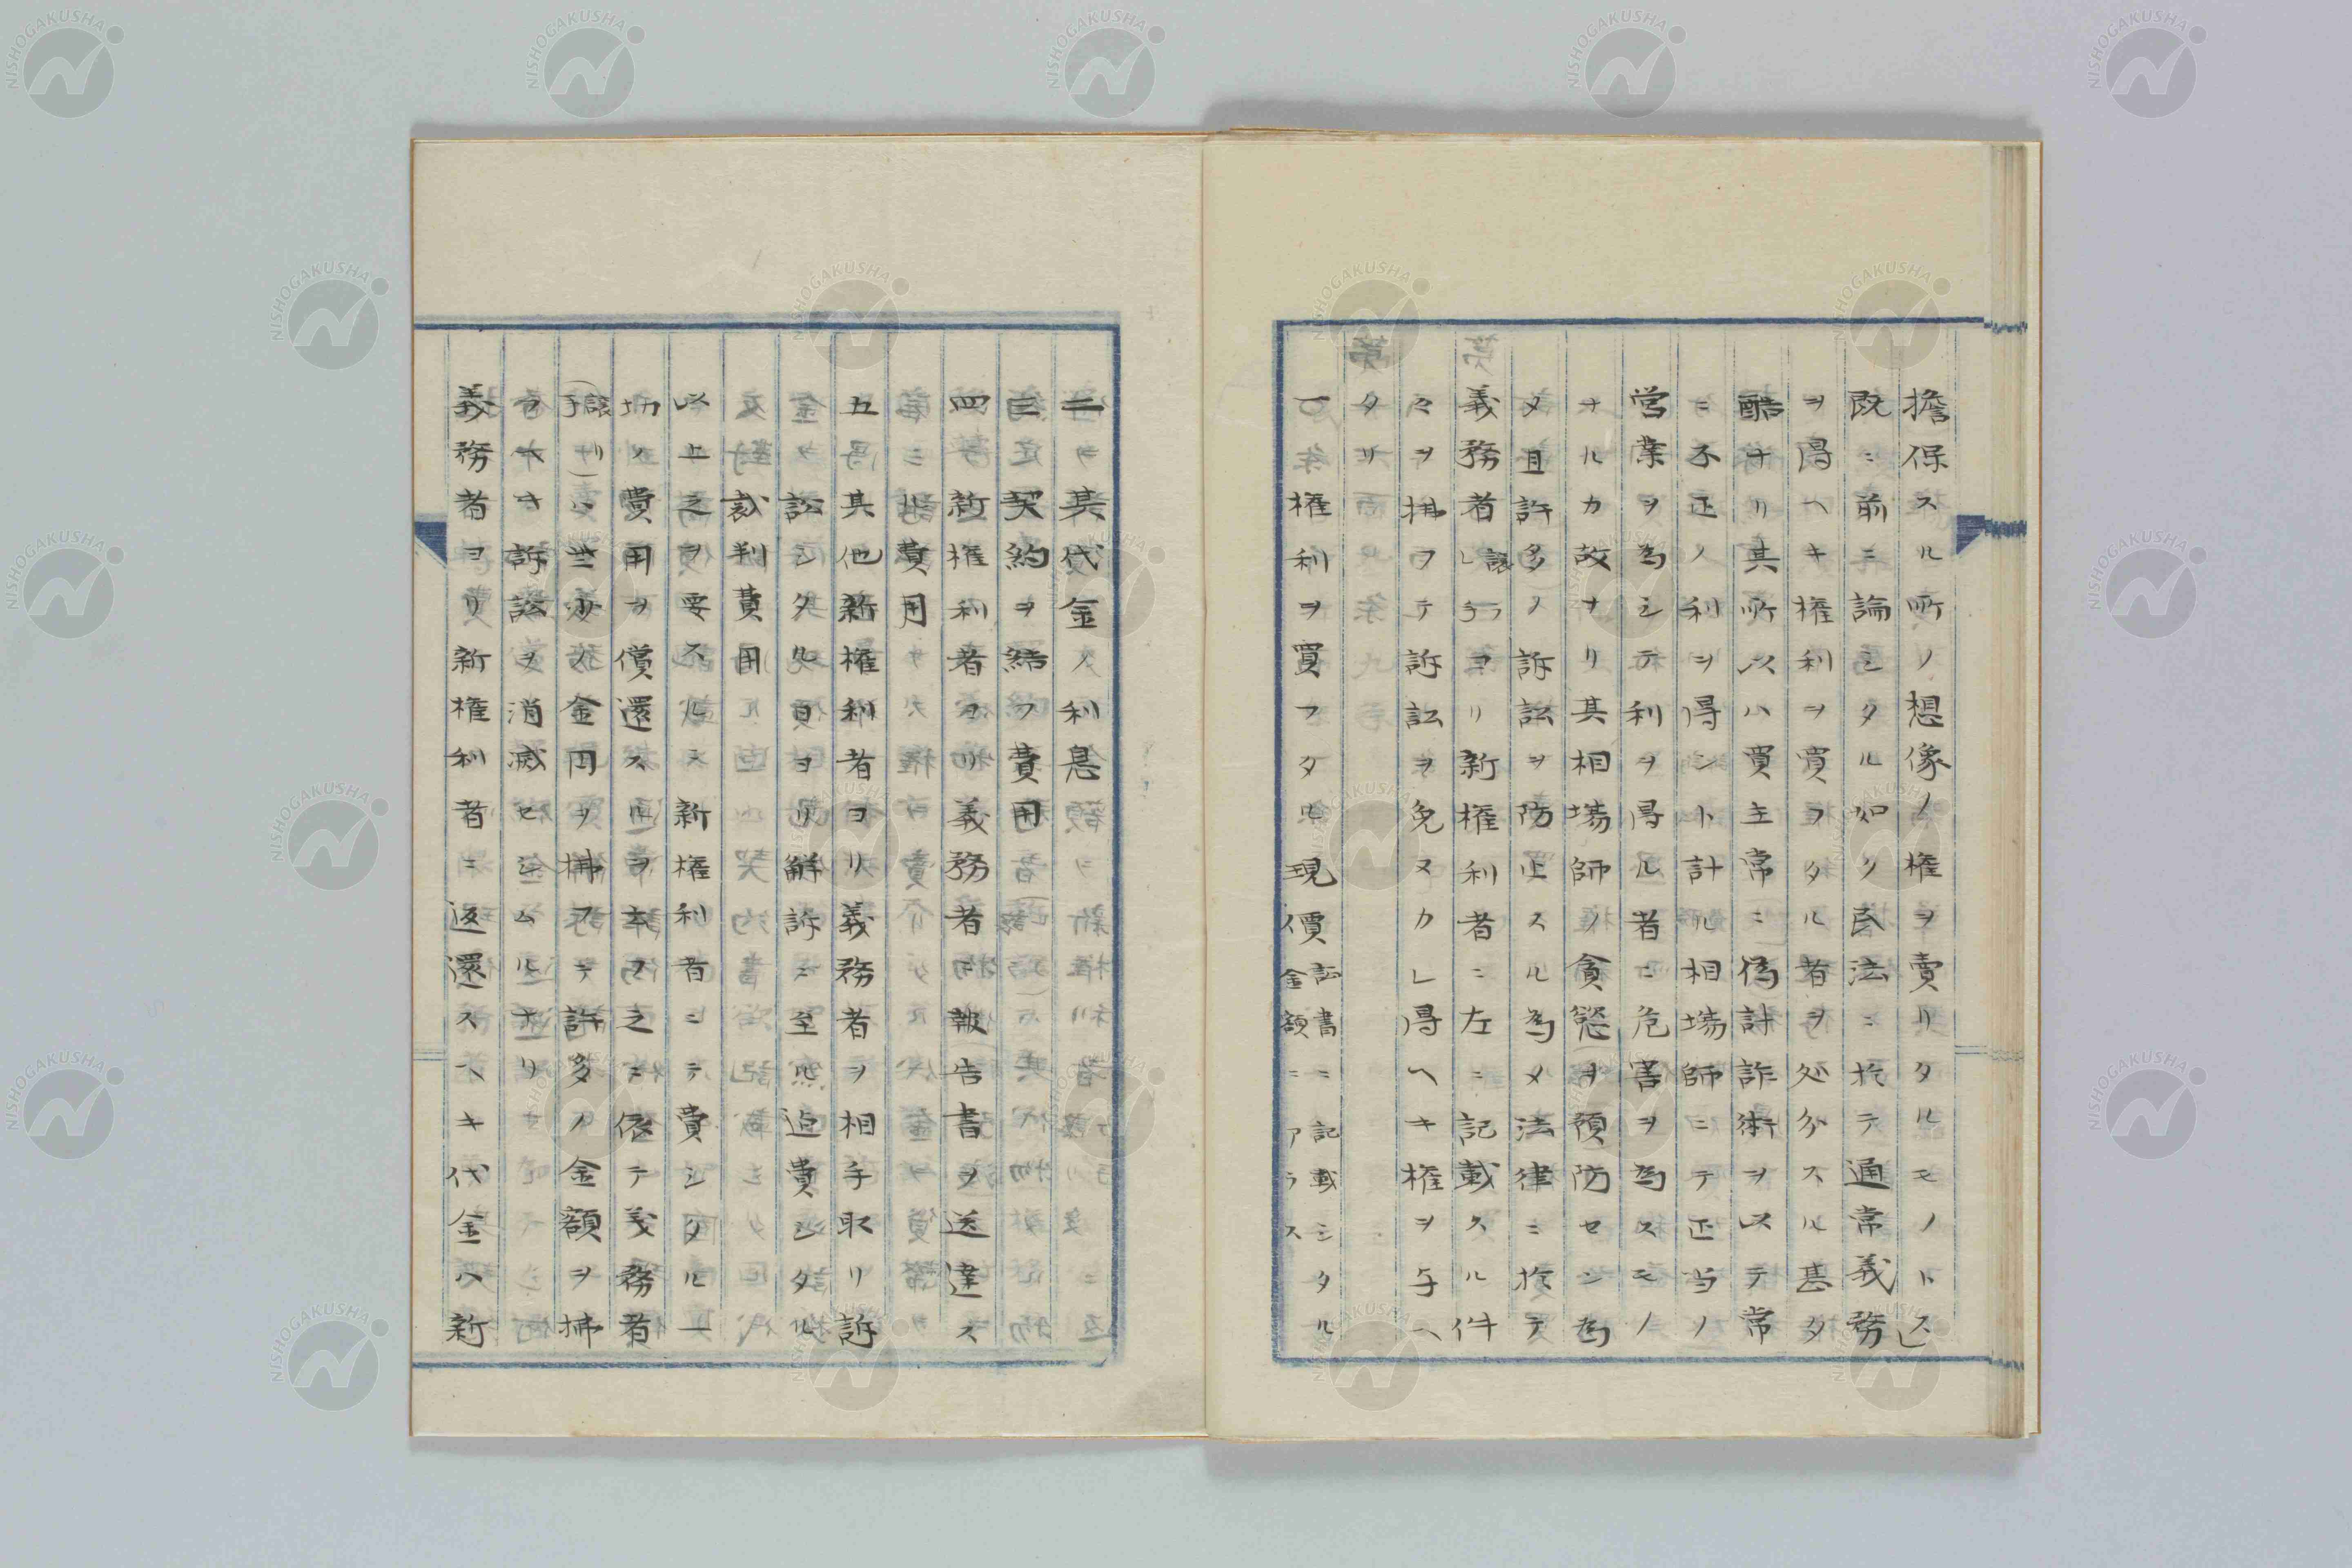 擔保スル所ノ想像ノ権ヲ賣リタルモノトス」
既ニ前ニ論シタル如ク民法ニ於テ通常義務
ヲ得ヘキ権利ヲ買ヲタル者ヲ処分スル甚タ
酷ナリ其所以ハ買主常ニ偽計詐術ヲ以テ常
ニ不正ノ利ヲ得ント計ル相場師ニテ正当ノ
営業ヲ為シテ利ヲ得ル者ニ危害ヲ為スモノ
ナルカ故ナリ其相場師ノ貪慾ヲ預防センカ為
メ且許多ノ訴訟ヲ防止スル為メ法律ニ於テ
義務者譲レ行ヨリ新権利者ニ左ニ記載スル件
々ヲ拂フテ訴訟ヲ免ヌカレ得ヘキ権ヲ与ヘ
タリ
一 権利ヲ買フタル現價証書ニ記載シタル金額ニアラス
二 其代金ノ利息
三 契約ヲ結フ費用
四 新権利者ヨリ義務者ニ報告書ヲ送達ス
ル費用
五 其他新権利者ヨリ義務者ヲ相手取リ訴
訟シタル日ヨリ解訴ニ至ル迠費シタル
裁判費用
以上之ヲ要スルニ新権利者ニテ費シタル一
切ノ費用ヲ償還スルヲ云フ之ニ依テ義務者
譲リ手ハ些少ノ金円ヲ拂フテ許多ノ金額ヲ拂
フヘキ訴訟ヲ消滅セシムルナリ
義務者ヨリ新権利者ニ返還スヘキ代金ハ新
NISHOGAKUSHA